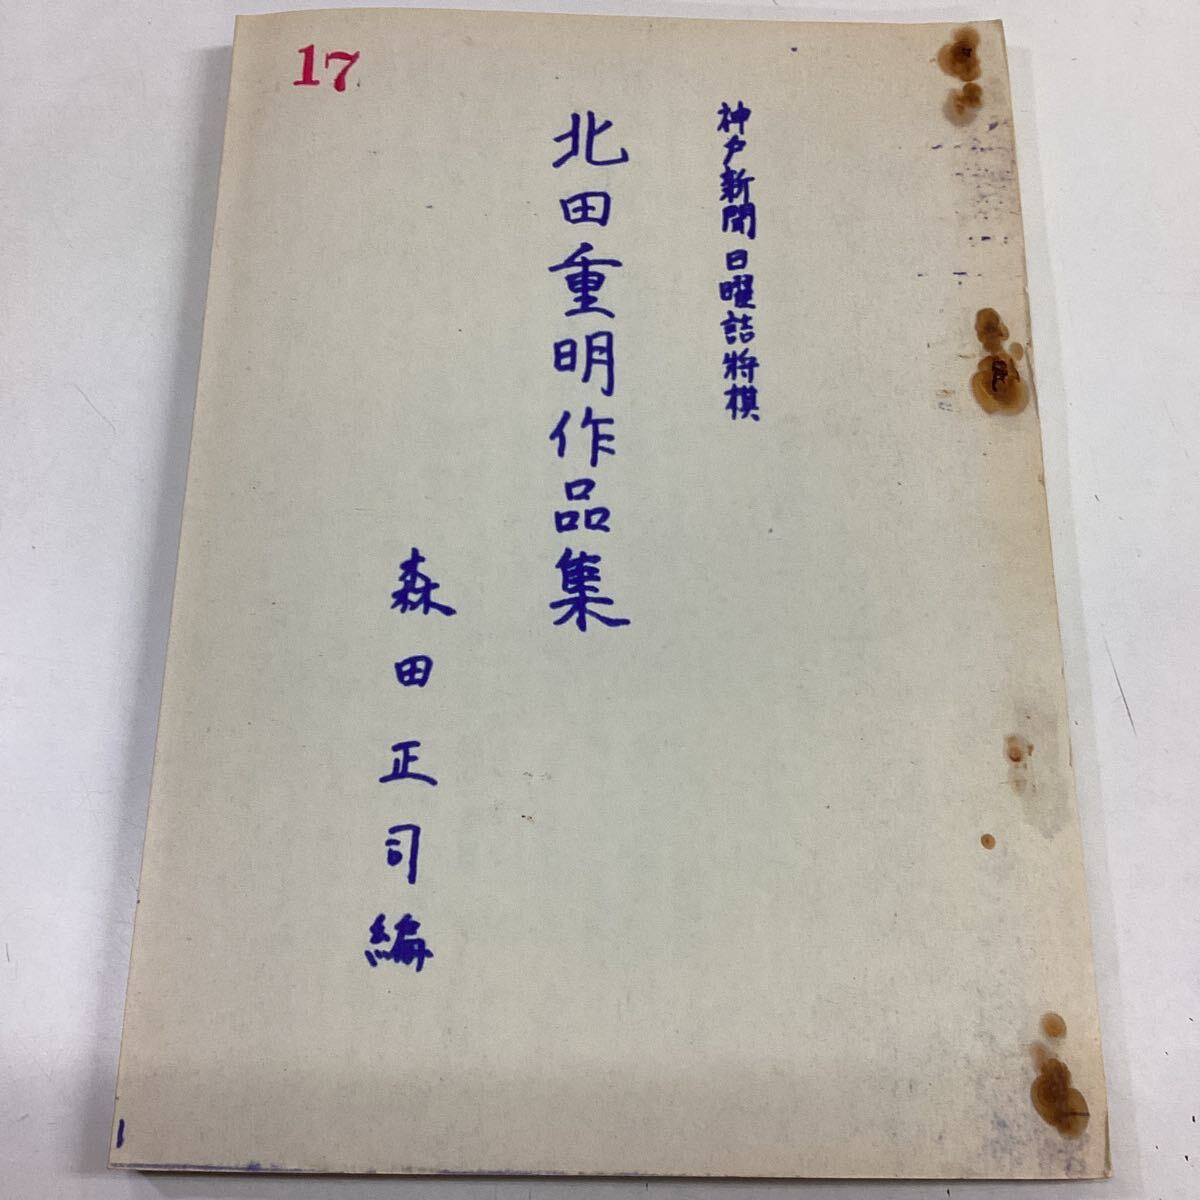 17
神戸新聞日曜詰将棋
北田重明作品集
森田正司編